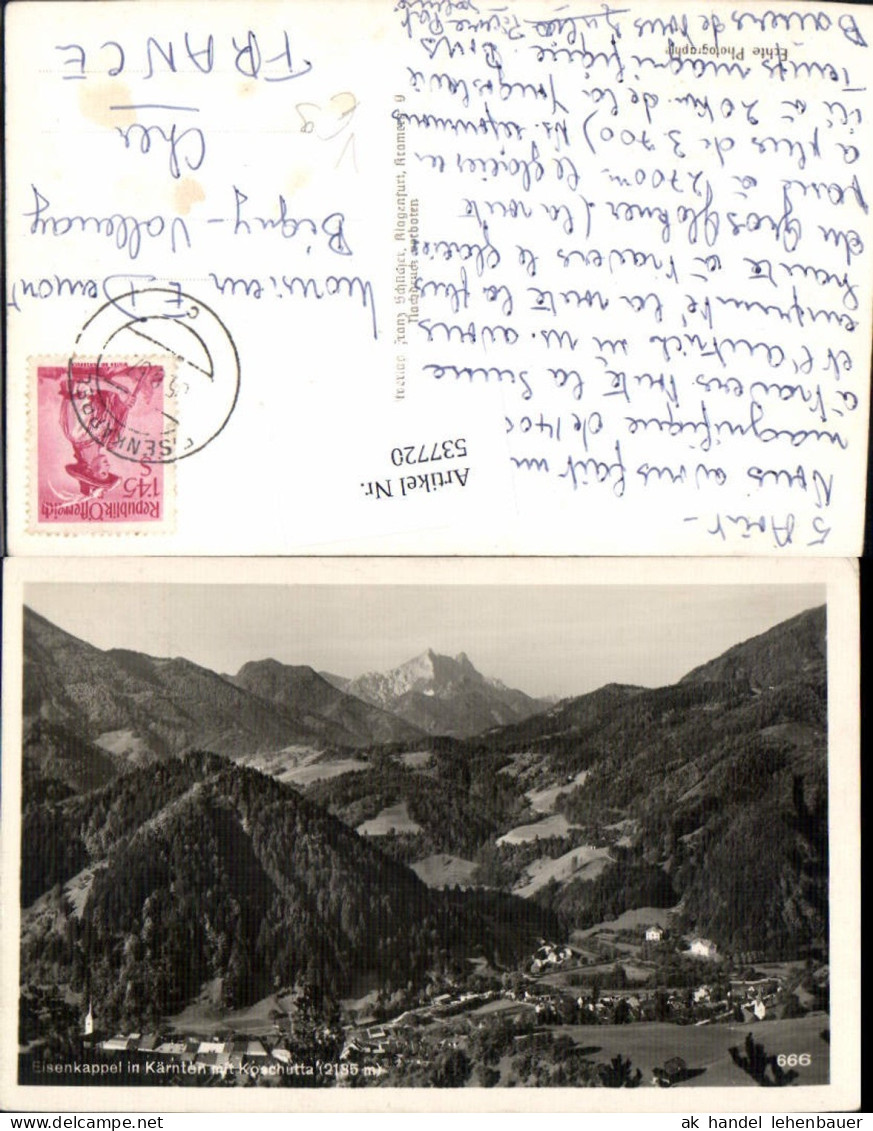 5 Août -
Nous avons fait un
magnifique de 1400
à travers toute la Suisse
et l'Autriche ns. avons
emprunté la route la plus
haute à travers le glacier
du Grosglokner (la route
passe à 2700m le glacier a
à plus de 3.700) Ns. sommes
ici à 20 km. de la Yougoslavie
Temps magnifique. Bons
Baisers de nous
Echte Photographie
Verlag Franz Schilcher, Klagenfurt, Kramerg. 9
Nachdruck verboten
Artikel Nr.
537720
EISENKAPPEL
Republik Österreich
1'45
S
Monsieur E. Demont
Bigny-Vallenay
Cher
FRANCE
Eisenkappel in Kärnten mit Koschutta (2135 m)
666
ak handel lehenbauer